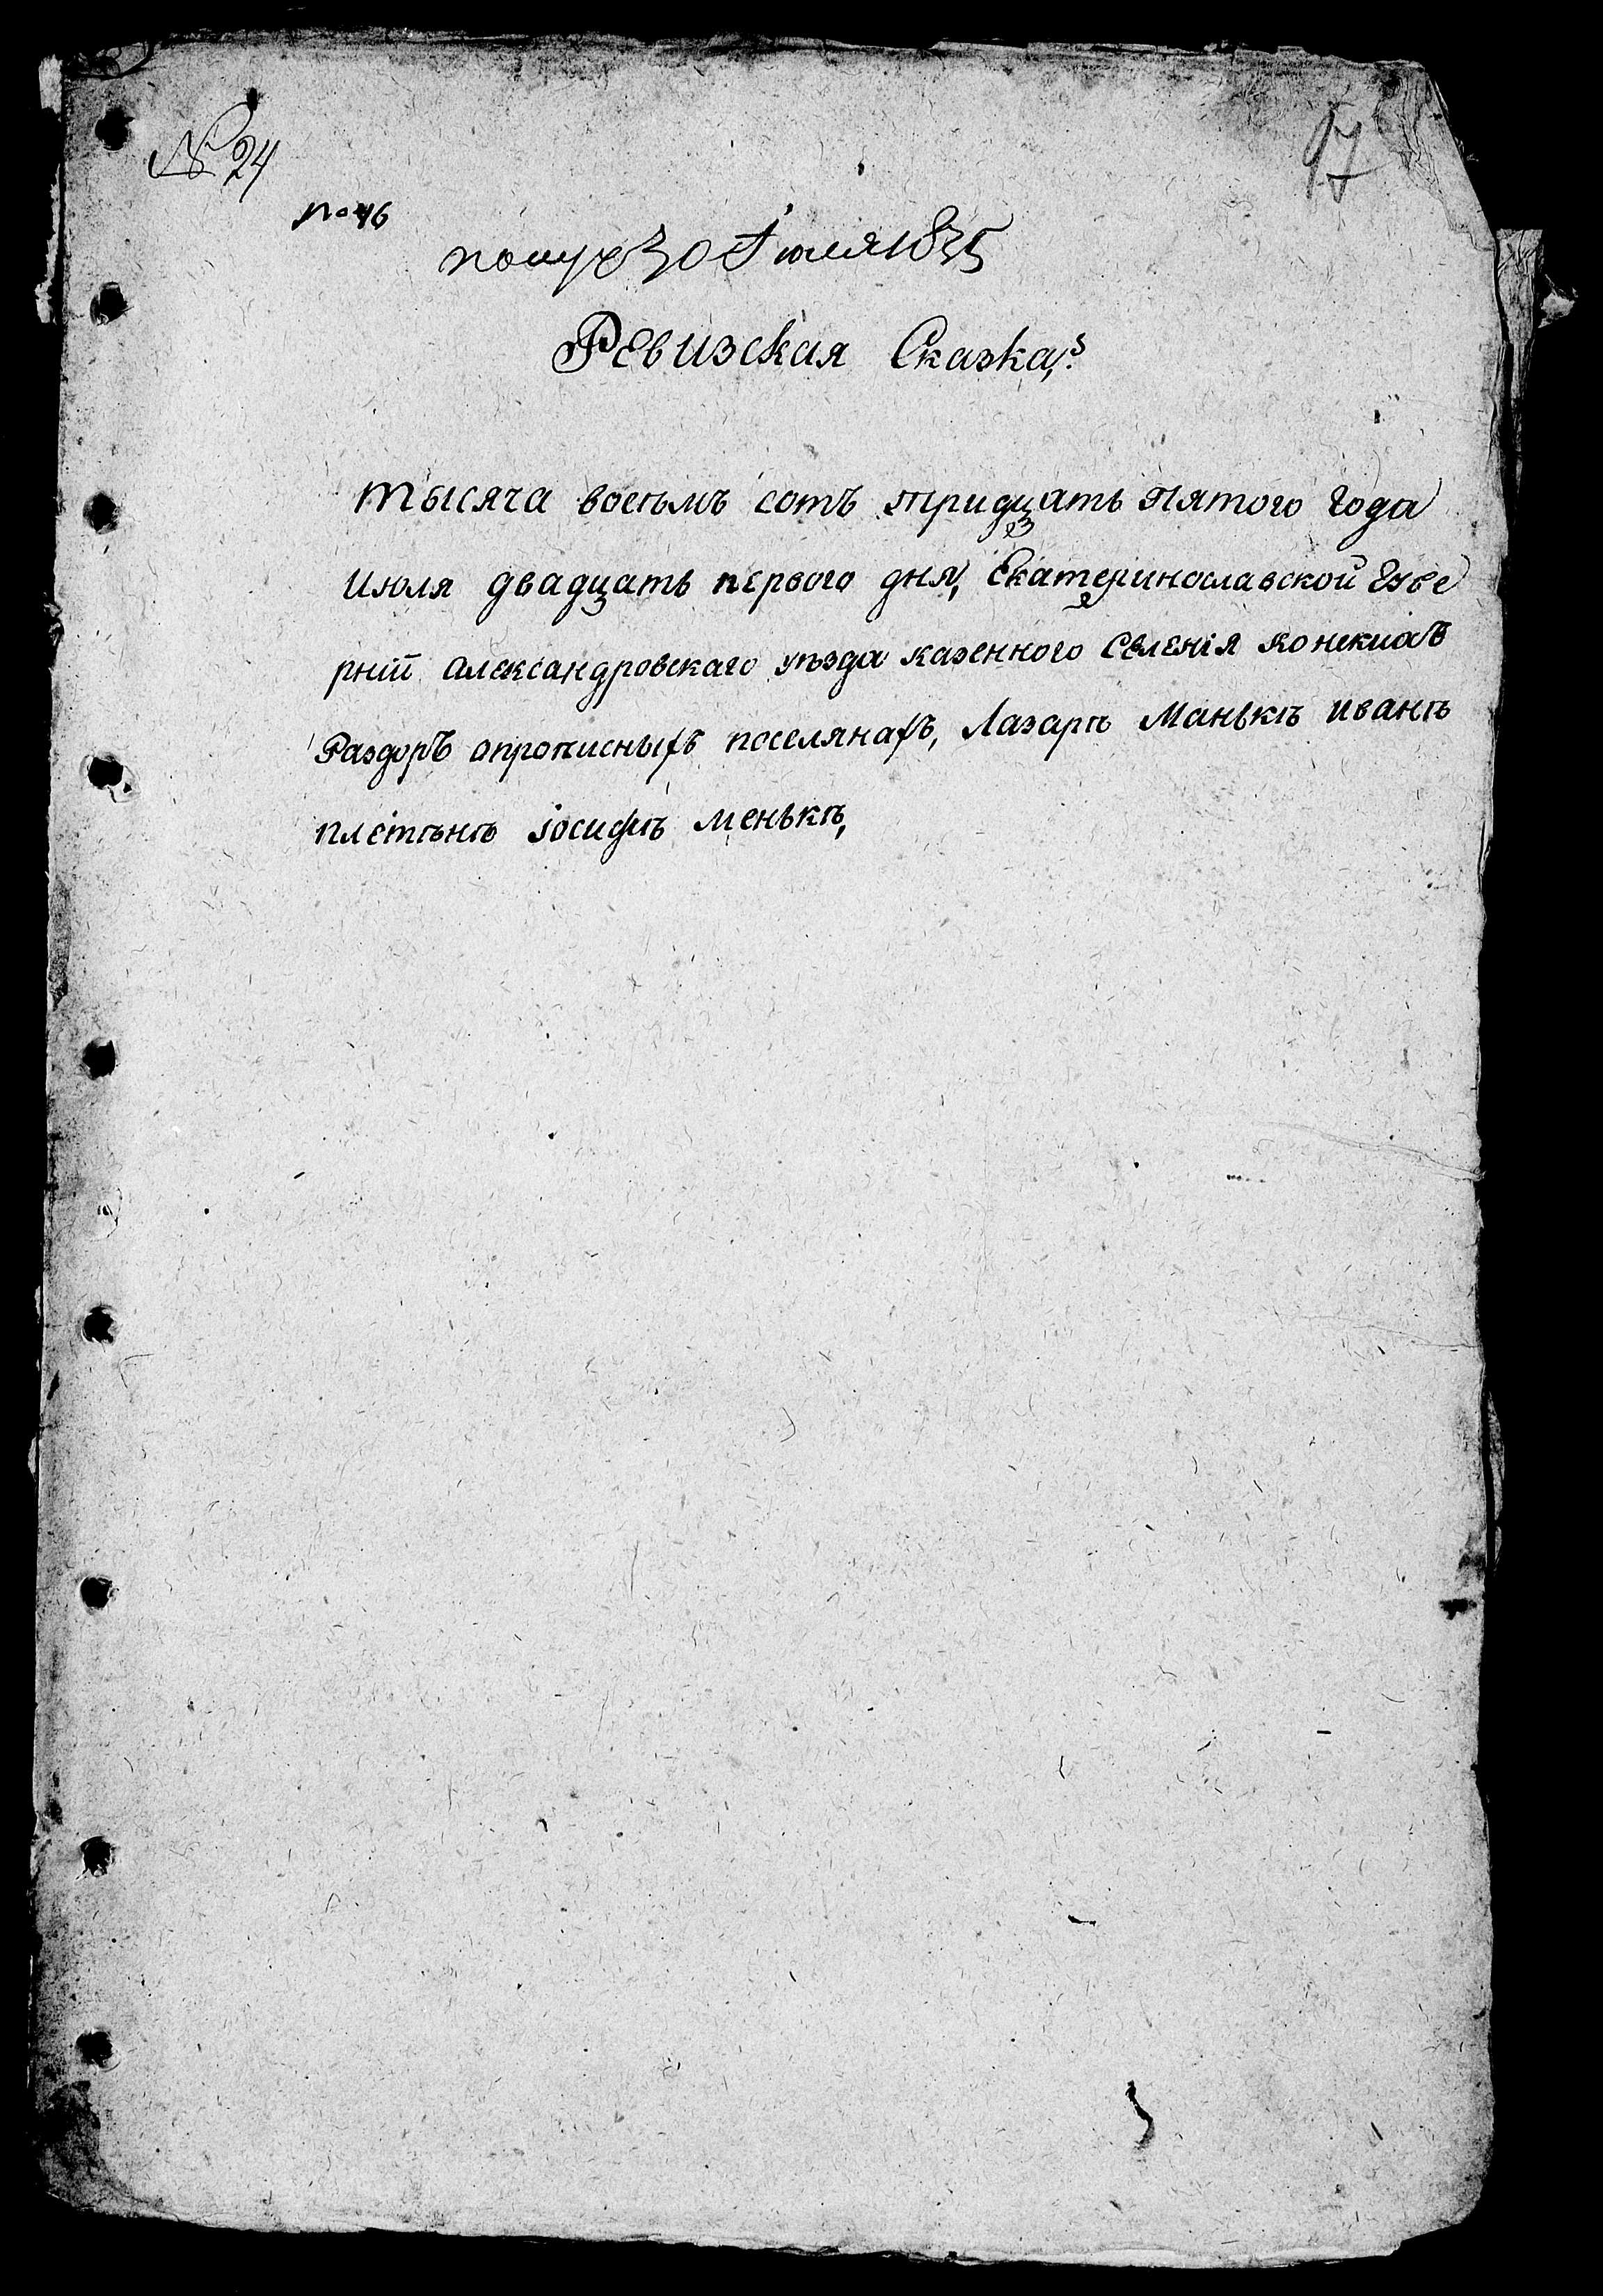 № 24
97
№ 46
получ 30 Іюля 1835
Ревизская Сказка,
тысяча восемъ сотъ тридцать пятого года
июля двадцать первого дня, Екатеринославской губе
рніи Александровскаго уѣзда казенного селенія Конскихъ
Раздоръ опрописныхъ поселянахъ, Лазарѣ Манькѣ иванѣ
плетѣнѣ іосифѣ менькѣ,